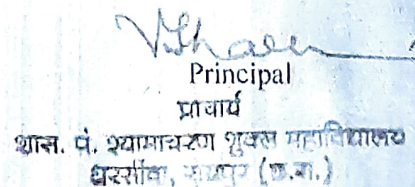 Principal
प्राचार्य
शास. पं. श्यामाचरण शुक्ल महाविद्यालय
धरसींवा, रायपुर (छ.ग.)